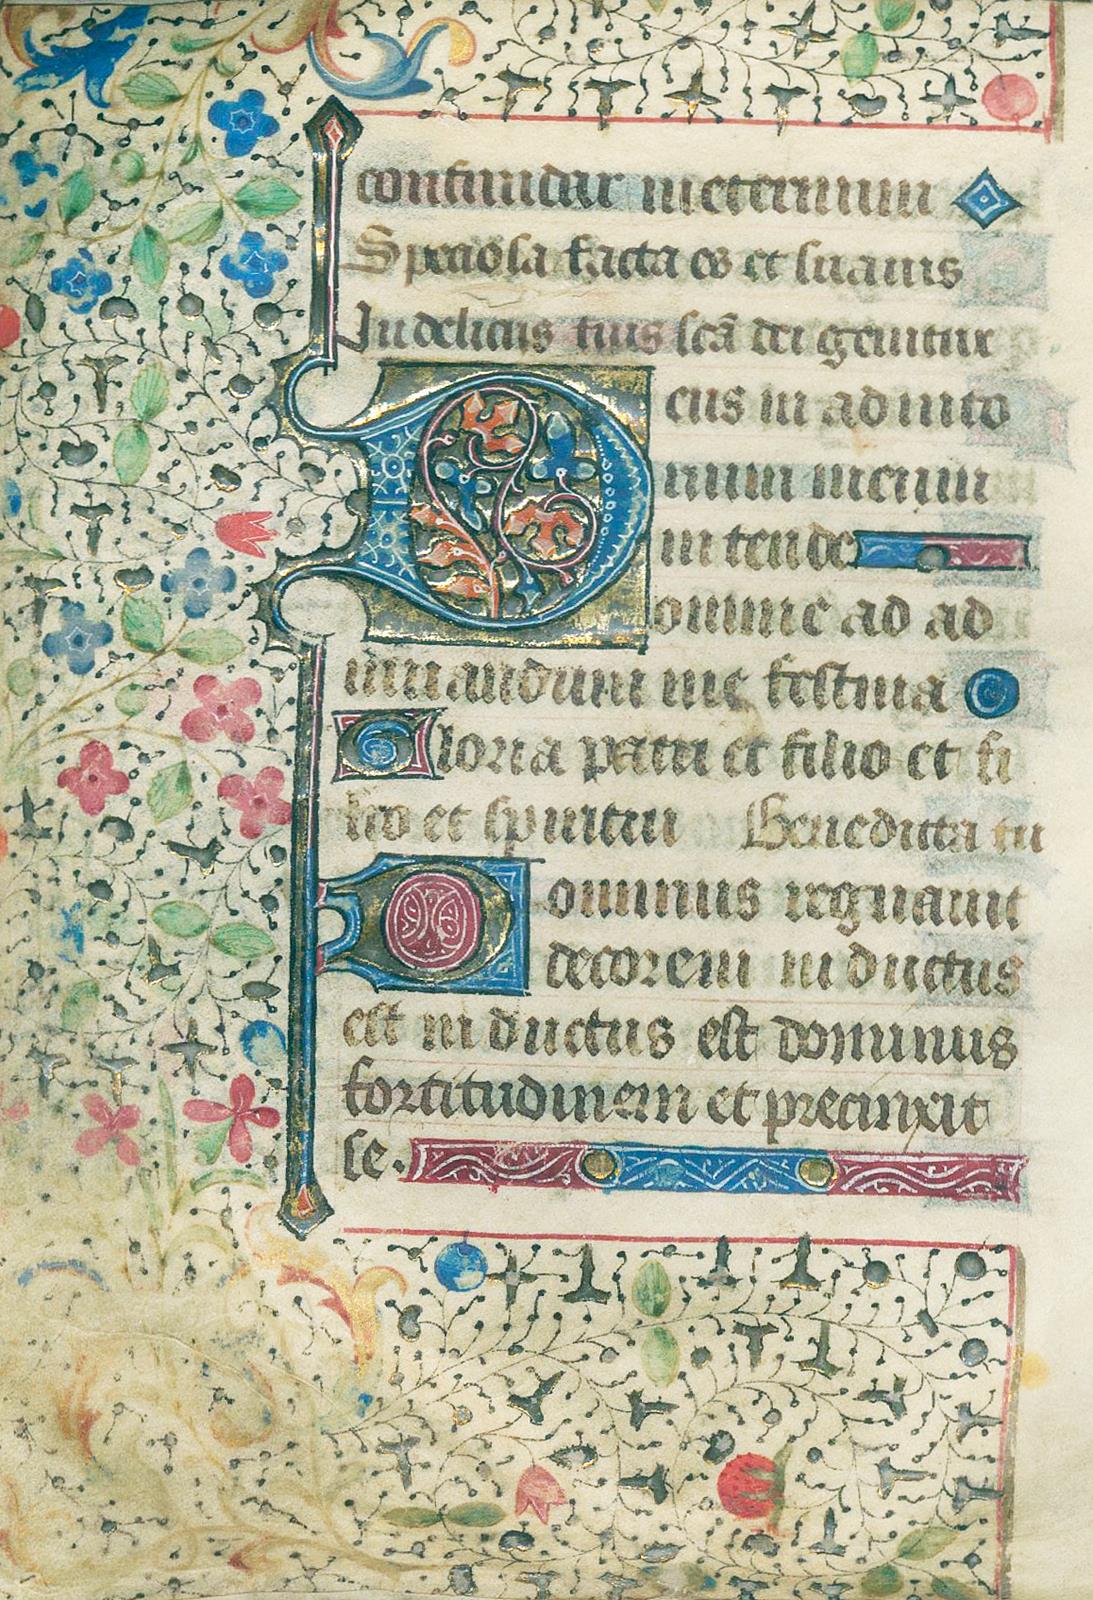 confundar in eternum
Speciosa facta es et suauis
In deliciis tuis scã dei genitrix
Deus in adiuto
rium meum
intende
omine ad ad
iuuandum me festina
Gloria patri et filio et fi
lio et spiritui Benedicta tu
Dominus regnauit
decorem inductus
est inductus est dominus
fortitudinem et precinxit
se.